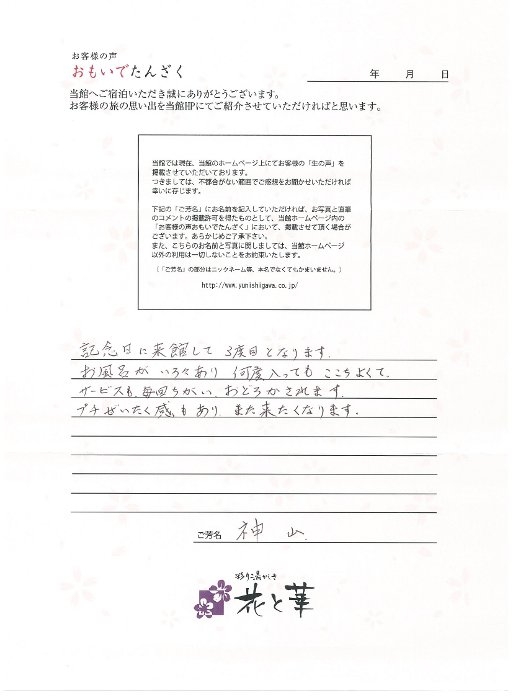 お客様の声
おもいでたんざく
年 月 日
当館へご宿泊いただき誠にありがとうございます。
お客様の旅の思い出を当館HPにてご紹介させていただければと思います。
当館では現在、当館のホームページ上にてお客様の「生の声」を
掲載させていただいております。
つきましては、不都合がない範囲でご感想をお聞かせいただければ
幸いに存じます。
下記の「ご芳名」にお名前を記入していただければ、お写真と直筆
のコメントの掲載許可を得たものとして、当館ホームページ内の
「お客様の声おもいでたんざく」において、掲載させて頂く場合が
ございます。あらかじめご了承下さい。
また、こちらのお名前と写真に関しましては、当館ホームページ
以外の利用は一切しないことをお約束いたします。
（「ご芳名」の部分はニックネーム等、本名でなくてもかまいません。）
http://www.yunishigawa.co.jp/
記念日に来館して 3度目となります。
お風呂が いろいろあり 何度入っても ここちよくて、
サービスも、毎回ちがい、おどろかされます。
プチぜいたく感もあり また来たくなります。
ご芳名 神 山
彩り湯かしき
花と華